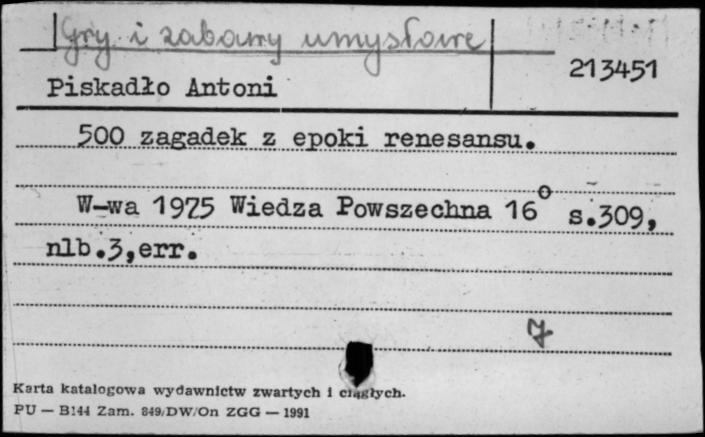 Gry i zabawy umysłowe
213451
Piskadło Antoni
500 zagadek z epoki renesansu.
W-wa 1975 Wiedza Powszechna 16° s.309,
nlb.3,err.
Karta katalogowa wydawnictw zwartych i ciągłych.
PU — B144 Zam. 849/DW/On ZGG — 1991